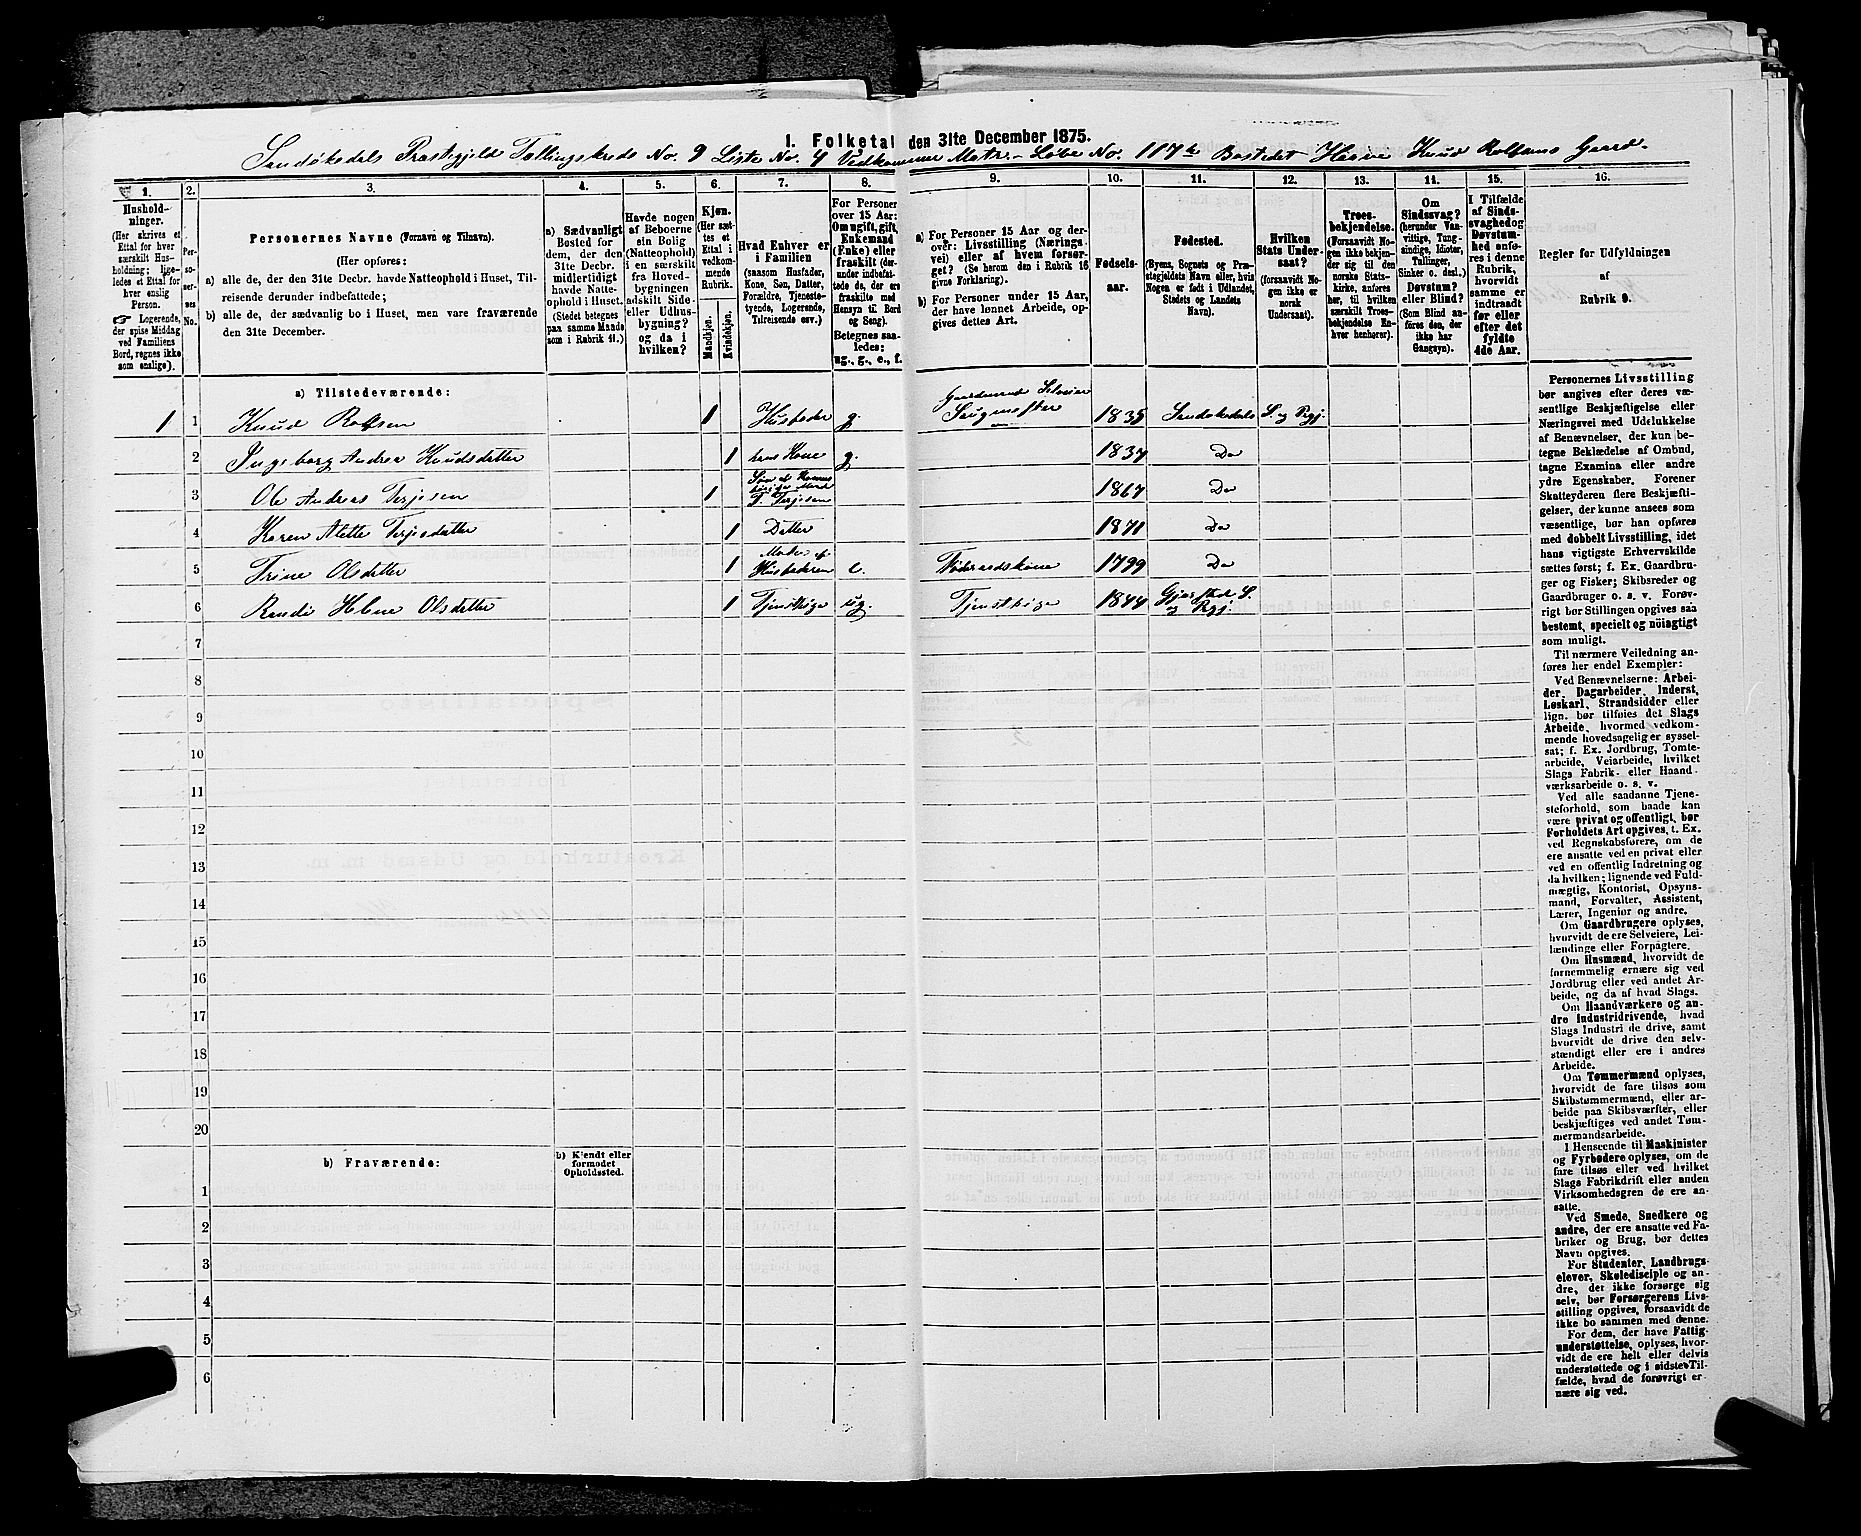 I. Folketal den 31te December 1875.
Sandøkedals Præstegjeld Tællingskreds No. 9 Liste No. 4 Vedkommer Matr.-Løbe No. 117 Bostedet Knud Rolfsens Gaard.
1. 2. 3. 4. 5. 6. 7. 8. 9. 10. 11. 12. 13. 14. 15. 16.
Husholdninger.
(Her skrives et
Ettal for hver
særskilt Husholdning;
ligeledes et Ettal for
hver enslig
Person.
☞ Logerende,
der spise Middag
ved Familiens
Bord, regnes ikke
som enslige).
Personernes
No.
Personernes Navne (Fornavn og Tilnavn).
(Her opføres:
a) alle de, der den 31te Decbr. havde Natteophold i Huset, Tilreisende derunder indbefattede;
b) alle de, der sædvanlig bo i Huset, men vare fraværende
den 31te December.
a) Sædvanligt
Bosted for
dem, der den
31te Decbr.
midlertidigt
havde Natteophold i Huset.
(Stedet betegnes
paa samme Maade
som i Rubrik 11.)
Havde nogen
af Beboerne
sin Bolig
(Natteophold)
i en særskilt
fra Hovedbygningen
adskilt Side-
eller Udhusbygning?
og da i
hvilken?
Kjøn.
(Her sættes et
Ettal i
vedkommende
Rubrik.
Mandkjøn.
Kvindekjøn.
Hvad Enhver er
i Familien
(saasom Husfader,
Kone, Søn, Datter,
Forældre, Tjenestetyende, Logerende,
Tilreisende osv.)
For Personer
over 15 Aar:
Om ugift, gift,
Enkemand
(Enke) eller
fraskilt (derunder indbefattede de, der ere
fraskilte med
Hensyn til Bord
og Seng).
Betegnes saaledes:
ug., g., e., f.
a) For Personer 15 Aar og derover: Livsstilling (Næringsvei) eller af hvem forsørget? (Se herom den i Rubrik 16
givne Forklaring).
b) For Personer under 15 Aar,
der have lønnet Arbeide, opgives dettes Art.
Fødselsaar.
Fødested.
(Byens, Sognets og Præstegjeldets Navn eller, hvis
Nogen er født i Udlandet,
Stedets og Landets
Navn).
Hvilken
Stats Undersaat?
(forsaavidt Nogen ikke er
norsk
Undersaat).
Troesbekjendelse.
(Forsaavidt Nogen ikke bekjender sig til den
norske Statskirke, anføres
her, til hvilken
særskilt Troesbekjendelse Enhver henhører).
Om
Sindssvag?
(herunder Vanvittige, Tungsindige, Idioter,
Tullinger,
Sinker o. desl.)
Døvstum?
eller Blind?
(Som Blind anføres den, der
ikke har
Gangsyn).
I Tilfælde
af Sindssvaghed og
Døvstumhed anføres i denne
Rubrik,
hvorvidt
samme er
indtraadt
før eller
efter det
fyldte
4de Aar.
Regler for Udfyldningen
af
Rubrik 9.
a) Tilstedeværende:
Gaardmand Selveier
1 1 Knud Rolfsen 1 Husfader g. 1835 Sandøkedals S. og Prgj.
2 Ingeborg Andrea Knudsdatter 1 hans Kone g. 1837 Do
3 Ole Andreas Terjesen 1 T. Terjesen 1867 Do
4 Karen Alette Terjesdatter 1 Datter 1871 Do
5 Trine Olsdatter 1 Moder af Husfaderen e. Føderaadskone 1799 Do
6 Randi Helene Olsdatter 1 Tjenstpige ug. Tjenstpige 1844 Gjerstad S. og Prgj.
7
8
9
10
11
12
13
14
15
16
17
18
19
20
b) Fraværende:
b) Kjendt eller
formodet
Opholdssted.
1
2
3
4
5
6
Personernes Livsstilling
bør angives efter deres væsentlige Beskjæftigelse eller
Næringsvei med Udelukkelse
af Benævnelser, der kun betegne Beklædelse af Ombud,
tagne Examina eller andre
ydre Egenskaber. Forener
Skatteyderen flere Beskjæftigelser, der kunne ansees som
væsentlige, bør han opføres
med dobbelt Livsstilling, idet
hans vigtigste Erhvervskilde
sættes først; f. Ex. Gaardbruger og Fisker; Skibsreder og
Gaardbruger o. s. v. Forøvrigt bør Stillingen opgives saa
bestemt, specielt og nöiagtigt
som muligt.
Til nærmere Veiledning anføres her endel Exempler:
Ved Benævnelserne: Arbeider, Dagarbeider, Inderst,
Løskarl, Strandsidder eller
lign. bør tilføies det Slags
Arbeide, hvormed vedkommende hovedsagelig er sysselsat; f. Ex. Jordbrug, Tomtearbeide, Veiarbeide, hvilket
Slags Fabrik- eller Haandværksarbeide o. s. v.
Ved alle saadanne Tjenesteforhold, som baade kan
være privat og offentligt, bør
Forholdets Art opgives, t. Ex.
ved Regnskabsførere, om de
ere ansatte ved en privat eller
ved en offentlig Indretning og
da hvilken; lignende ved Fuldmægtig, Kontorist, Opsynsmand, Forvalter, Assistent,
Lærer, Ingeniør og andre.
Om Gaardbrugere oplyses,
hvorvidt de ere Selveiere, Leilændinge eller Forpagtere.
Om Husmænd, hvorvidt de
fornemmelig ernære sig ved
Jordbrug eller ved andet Arbeide, og da af hvad Slags.
Om Haandværkere og andre Industridrivende, hvad
Slags Industri de drive, samt
hvorvidt de drive den selvstændigt eller ere i andres
Arbeide.
Om Tømmermænd oplyses,
hvorvidt de fare tilsøs som
Skibstømmermænd, eller arbeide paa Skibsværfter, eller
beskjæftiges ved andet Tømmermandsarbeide.
I Henseende til Maskinister
og Fyrbødere oplyses, om de
fare tilsøs eller ved hvilket
Slags Fabrikdrift eller anden
Virksomhedsgren de ere ansatte.
Ved Smede, Snedkere og
andre, der ere ansatte ved Fabriker og Brug, bør dettes
Navn opgives.
For Studenter, Landbrugselever, Skoledisciple og andre, der ikke forsørge sig
selv, bør Forsørgerens Livsstilling opgives, forsaavidt de
ikke bo sammen med denne.
For dem, der have Fattigunderstøttelse, oplyses, hvorvidt de ere helt eller delvis
understøttede og i sidste Tilfælde, hvad de forøvrigt ernære sig ved.